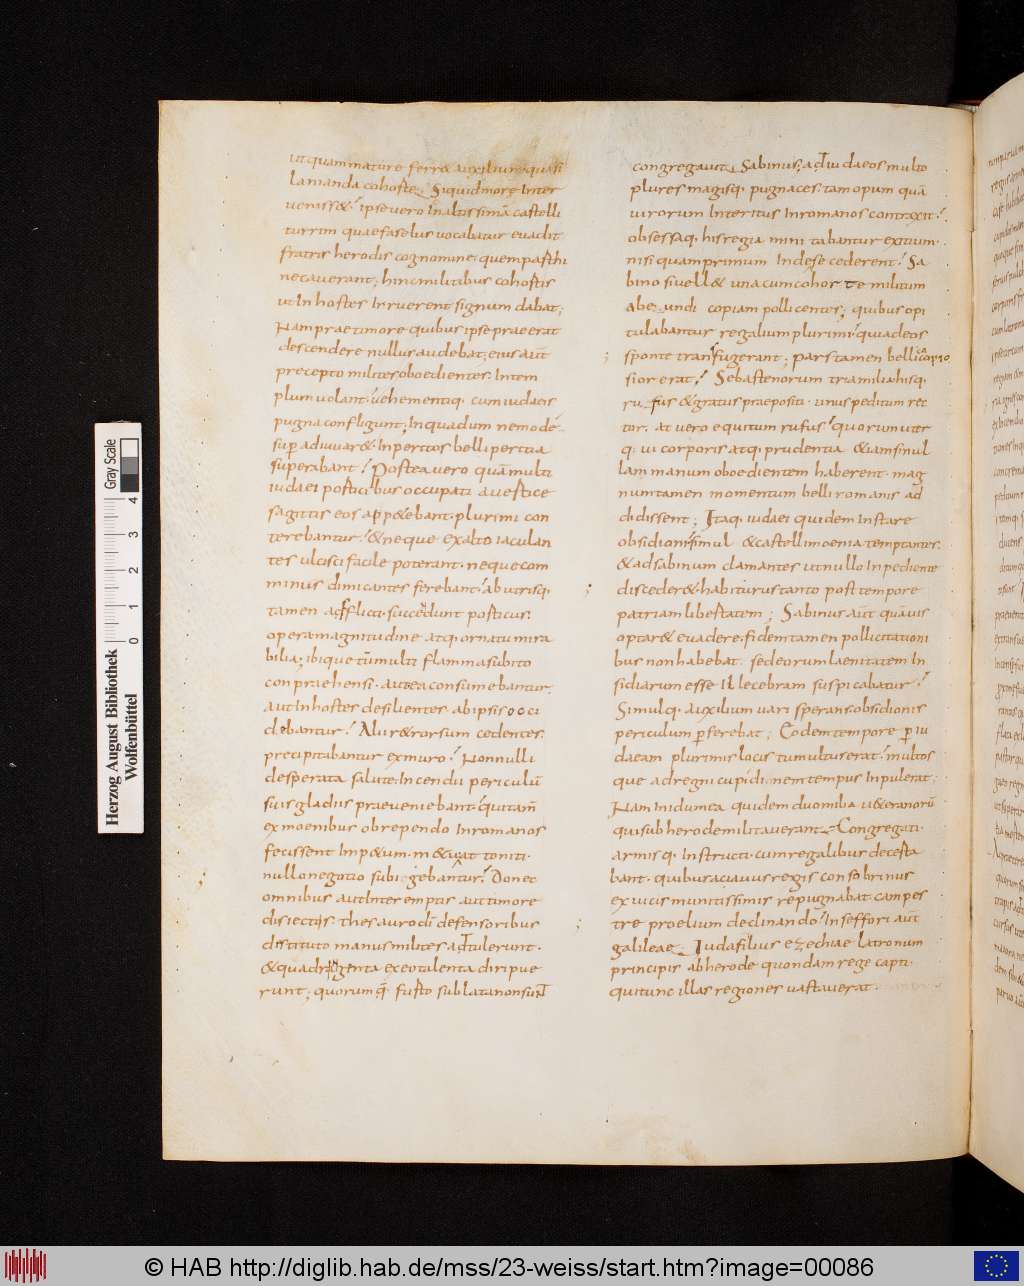 ut quam mature ferr& auxilium; quasi
lamanda cohorte; Siquid more Inter
uenisse&; ipse vero In altissimā castelli
turrim quae faselus vocabatur evadit
fratris herodis cognomine; quem parthi
necaverant; hinc militibus cohortis
ut In hostes Irruerent signum dabat;
Nam prae timore quibus ipse praeerat
descendere nullus audebat; eius aūt
precepto milites oboedientes. In tem
plum volant. vehementiq. cum iudaeis
pugna confligunt; In qua dum nemo de
sup adiuvar& Inperitos belli peritia
superabant; Postea vero quā multi
iudaei porticibus occupati a vertice
sagittis eos app&ebant. plurimi con
terebantur. & neque ex alto iaculan
tes ulcisci facile poterant. neque com
minus dimicantes ferebant. ab utrisq;
tamen afflicti. succedunt porticus.
opera magnitudine atq; ornatu mira
bilia; ibique tū multi flamma subito
conpraehensi. aut ea consumebantur;
aut In hostes desilientes ab ipsis occi
debantur; Alii r&rorsum cedentes.
precipitabantur ex muro; Nonnulli
desperata salute. Incendii periculū
suis gladiis praeveniebant. qui tam̄
ex moenibus obrependo In romanos
fecissent Imp&um. m&u at toniti.
nullo negotio subigebantur; Donec
omnibus aut Interemptis aut timore
disiectis. thesauro dī defensoribus
distituto manus milites adtulerunt.
& quadringenta ex eo talenta diripue
runt; quorum q̄ furto sublata non sunt
congregavit; Sabinus. ad iudaeos multo
plures magisq; pugnaces. tam opum quā
virorum Interitus In romanos contraxit;
obsessaq. his regia minitabantur exitium.
nisi quam primum Inde se cederent; Sa
bino si vell& una cum cohorte militum
abeundi copiam pollicentes; quibus opi
tulabantur regalium plurimi qui ad eos
sponte transfugerant; pars tamen bellicosio
sior erat; Sebastenorum tria milia hisq.
rufus & gratus praepositi. unus peditum rec
tor. at vero equitum rufus; quorum uter
q. vi corporis atq. prudentia & iam si nul
lam manum oboedientem haberent. mag
num tamen momentum belli romanis ad
didissent; Itaq. iudaei quidem Instare
obsidioni simul & castelli moenia temptantes.
& ad sabinum clamantes ut nullo Inpediente
disceder& habiturus tanto post tempore
patriam libertatem; Sabinus aūt quāvis
optar& evadere. fidem tamen pollicitationi
bus non habebat. sed eorum laenitatem In
sidiarum esse Illecebram suspicabatur;
Simulq. auxilium vari sperans. obsidionis
periculum p ferebat; Eodem tempore p iu
daeam plurimis locis tumultus erat; multos
que ad regni cupidinem tempus Inpulerat;
Nam In idumea quidem duo milia v&eranorū
qui sub herode militaverant; Congregati.
armisq. Instructi. cum regalibus decerta
bant. quibus aciavus regis consobrinus
ex vicis munitissimis repugnabat. campes
tre proelium declinando; In seffori aūt
galileae; Iuda filius ezechiae latronum
principis ab herode quondam rege capti.
qui tunc illas regiones vastaverat.
Herzog August Bibliothek
Wolfenbüttel
Gray Scale
0 1 2 3 4
© HAB http://diglib.hab.de/mss/23-weiss/start.htm?image=00086